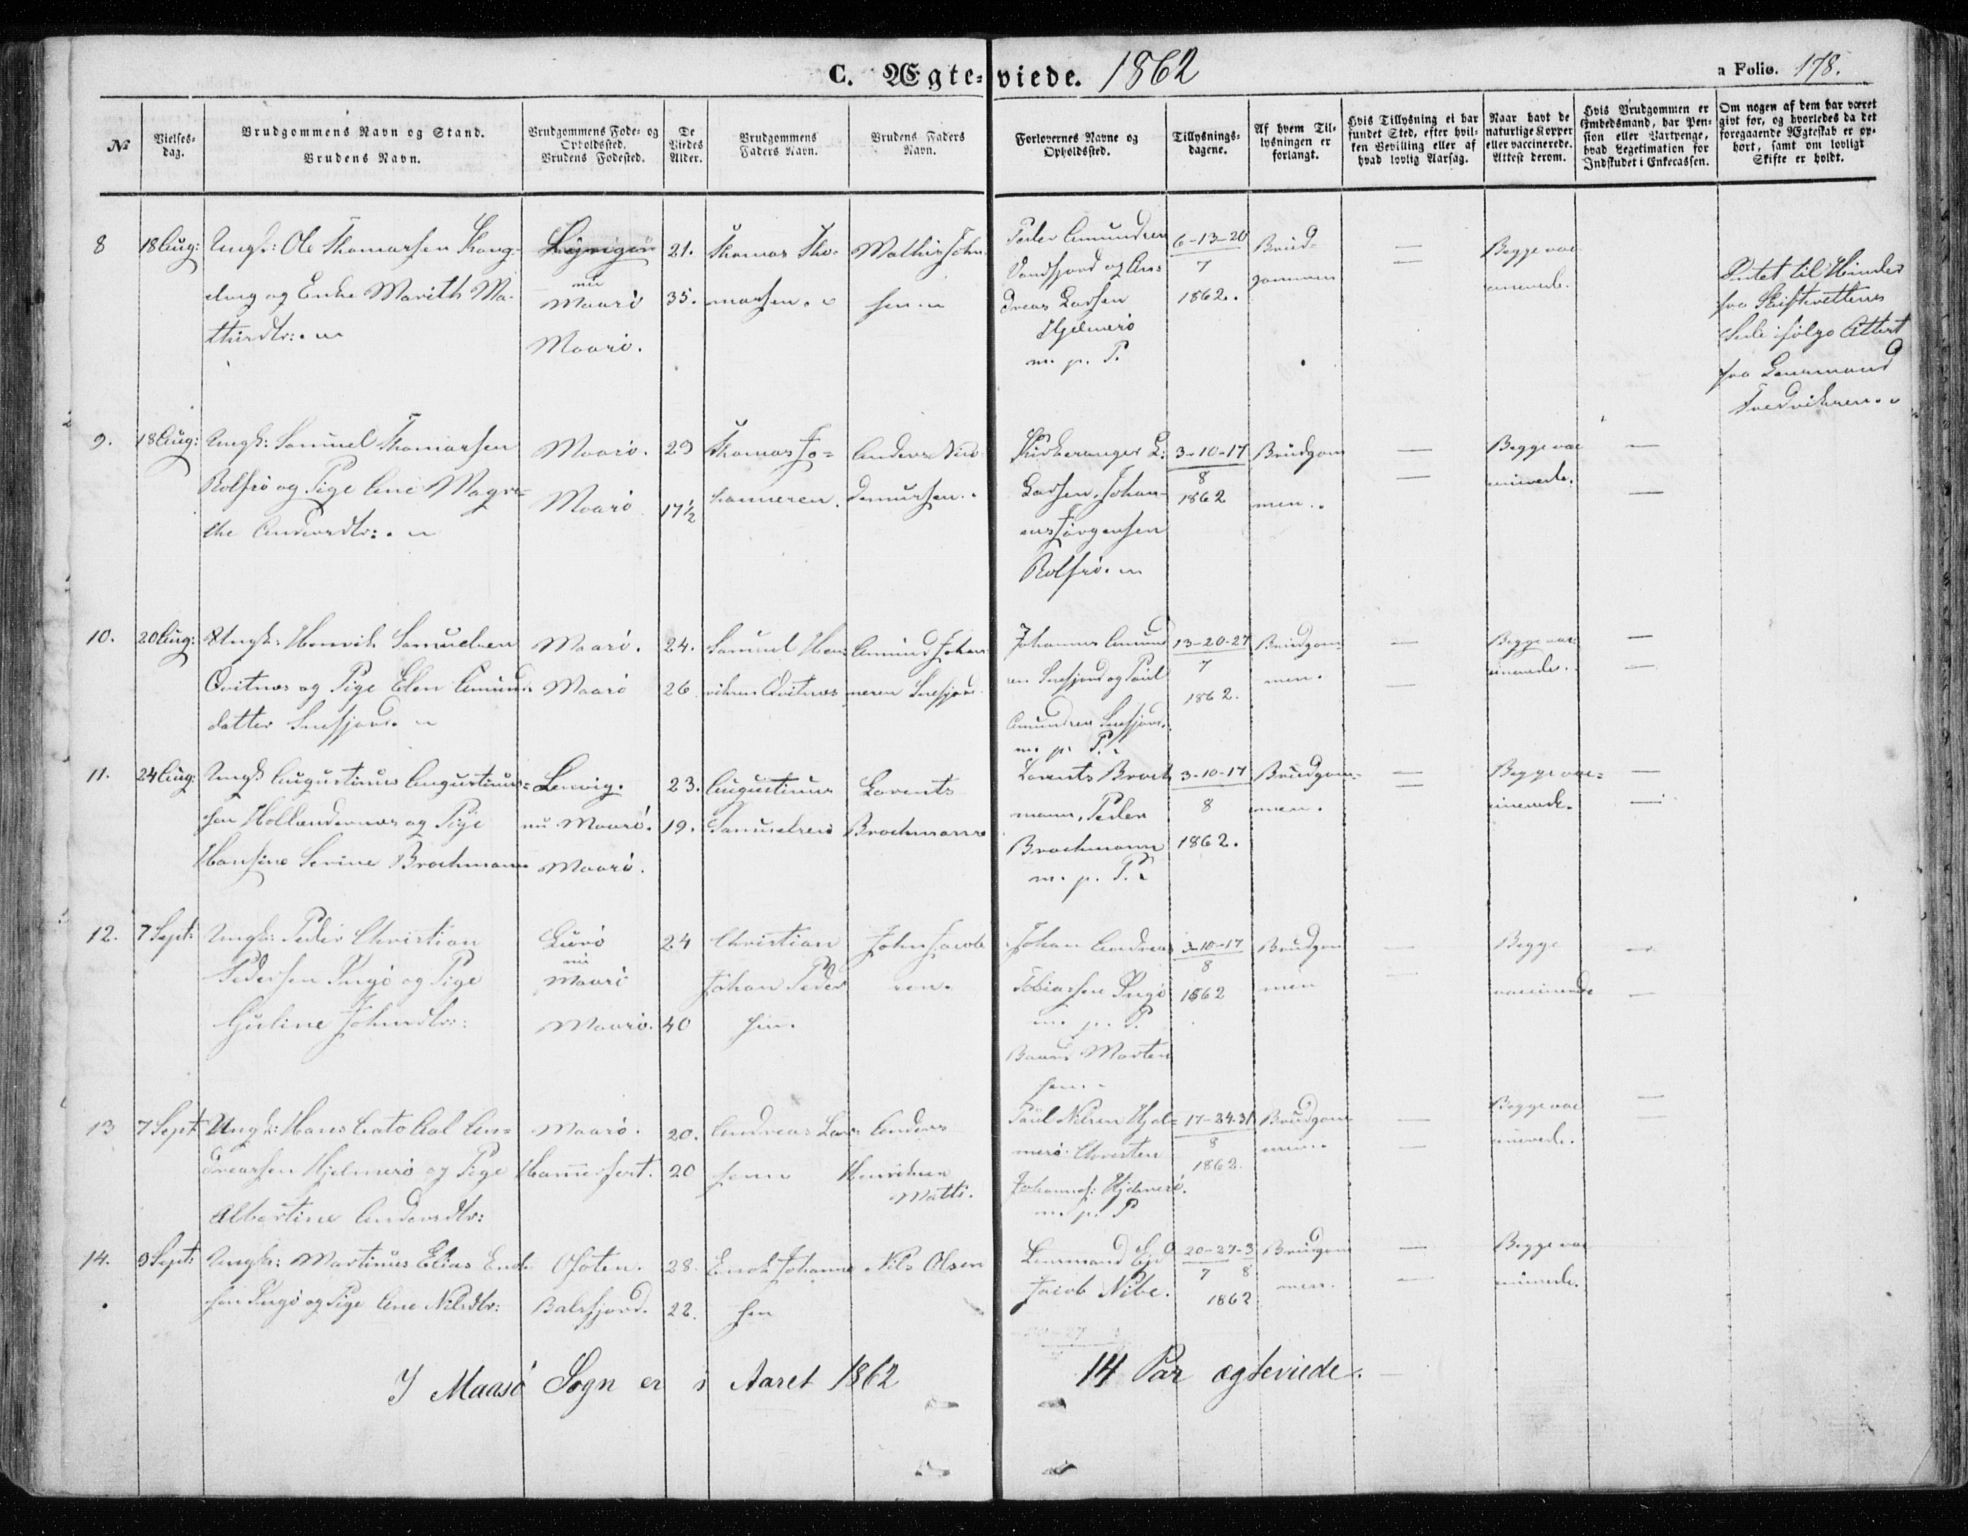 C. Ægte-viede. 1862
a Folio. 178.
№
Vielses-
dag.
Brudgommens Navn og Stand.
Brudens Navn.
Brudgommens Føde- og
Opholdssted.
Brudens Fødested.
De
Viedes
Alder.
Brudgommens
Faders Navn.
Brudens Faders
Navn.
Forlovernes Navne og
Opholdssted.
Tillysnings-
dagene.
Af hvem Til-
lysningen er
forlangt.
Hvis Tillysning ei har
fundet Sted, efter hvil-
ken Bevilling eller af
hvad lovlig Aarsag.
Naar havt de
naturlige Kopper
eller vaccinerede.
Attest derom.
Hvis Brudgommen er
Embedsmand, har Pen-
sion eller Vartpenge,
hvad Legetimation for
Indskudet i Enkecassen.
Om nogen af dem har været
givt før, og hvorledes da det
foregaaende Ægteskab er op-
hørt, samt om lovligt
Skifte er holdt.
8
18 Aug:
Ungk: Ole Thomassen
og Enke Marith Ma-
thisdtr:
nu
Maasø
Maasø.
21.
35.
Thomas Tho-
massen.
Mathis John-
sen
Peder Amundsen
og An-
dreas Larsen
Hjelmsø
m. p. P.
6-13-20
7
1862.
Brud-
gommen
Begge vac-
cinerede.
Intet til Hinder
fra Skifterettens
Side ifølge Attest
fra Lensmand
9.
18 Aug:
Ungk: Samuel Thomassen
Rolfsø og Pige Ane Magre-
the Andersdtr:
Maasø.
Maasø
29
17½
Thomas Jo-
hannesen.
Anders
Kirkesanger L:
Larsen, Johan-
nes Jørgensen
Rolfsø.
3-10-17
8
1862
Brudgom-
men.
Begge vac-
cinerede.
10.
20 Aug:
Ungk: Henrik Samuelsen
Qvitnæs og Pige Elen Amunds
datter Snefjord.
Maasø.
Maasø
24.
26
Samuel Hen-
riksen Qvitnæs
Amund Johan-
nesen Snefjord.
Johannes Amund
sen Snefjord og Paul
Amundsen Snefjord.
m. p. P.
13-20-27
7
1862.
Brudgom-
men.
Begge vac-
cinerede.
11.
24 Aug:
Ungk Augustinus Augustinus-
sen Hollendernæs og Pige
Hansine Sevrine Brochmann
Lenvig.
nu Maasø.
Maasø.
23.
19.
Augustinus
Samuelsen
Lorents
Brochmann
Lorents Broch
mann, Peder
Brochmann
m. p. P.
3-10-17
8
1862.
Brudgom-
men.
Begge vac-
cinerede.
12.
7 Sept:
Ungk: Peder Christian
Pedersen Ingø og Pige
Guline Johnsdtr:
Lurø
nu
Maasø
Maasø.
24
40
Christian
Johan Peder
sen.
John Jacob
sen.
Johan Andreas
Tobiassen Ingø
m. p. P.
Morten
sen.
3-10-17
8
1862
Brudgom
men
Begge
vaccinerede
13
7 Sept
Ungk: Hans Cato Aal An-
dreassen Hjelmsø og Pige
Albertine Andersdtr:
Maasø.
Hammerfest.
20.
20
Andreas Lar-
sen
Anders
Henriksen
Matti.
Paul Nilsen Hjel-
msø. Christen
Johannes: Hjelmsø.
m. p. P
17-24-31
8
1862.
Brudgom
men.
Begge vac
cinerede.
14.
9 Sept:
Ungk: Martinus Elias Enok
sen Ingø og Pige Ane Nilsdtr:
Ofoten.
Balsfjord.
28.
22.
Enok Johanne
sen
Nils Olsen
Lensmand
Jacob Nibe.
20-27-3
7 8
1862
Brudgom
men.
Begge vac
cinerede.
I Maasø Sogn er i Aaret 1862 14 Par ægteviede.